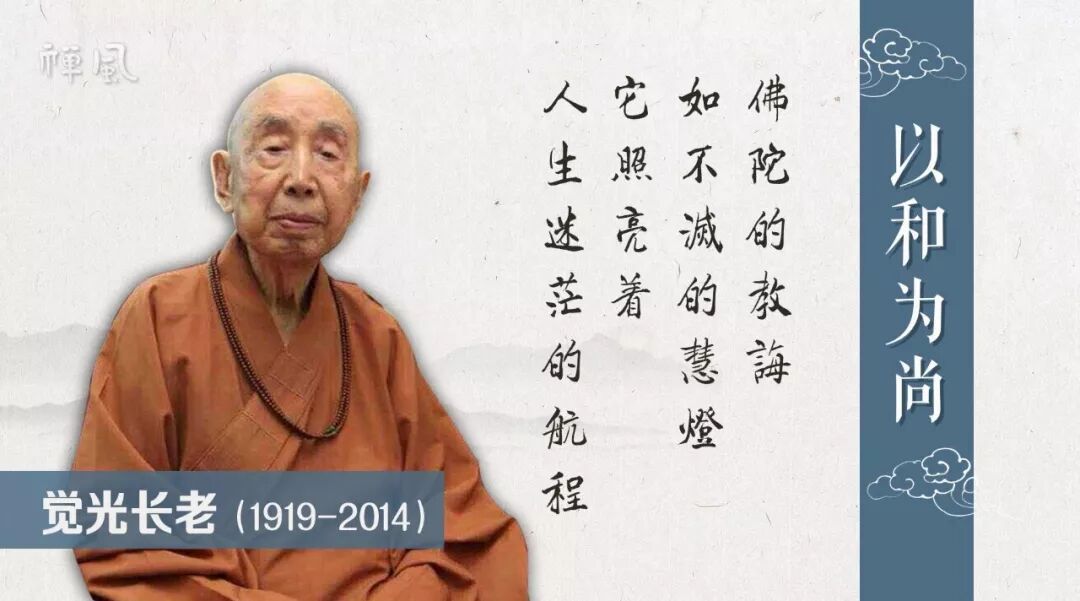 禅風
佛陀的教誨
如不滅的慧燈
它照亮着
人生迷茫的航程
以和为尚
觉光长老（1919-2014）